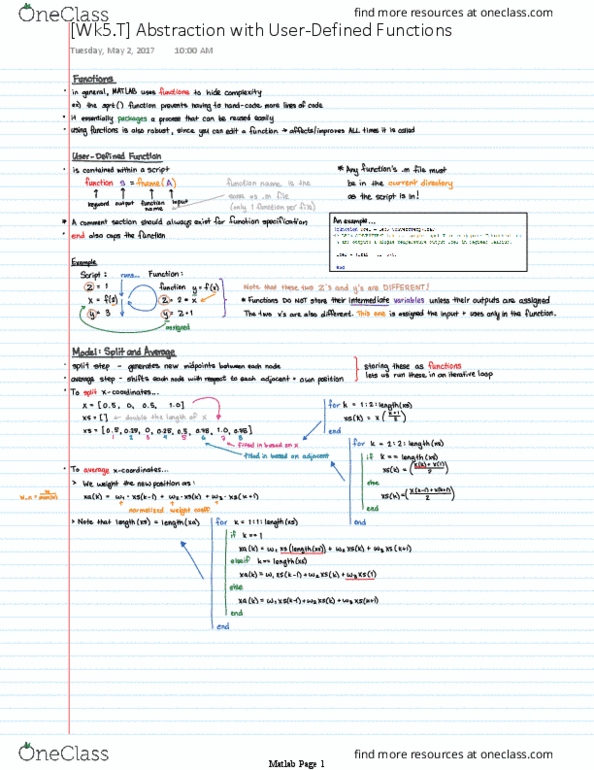 OneClass
find more resources at oneclass.com
[Wk5.T] Abstraction with User-Defined Functions
Tuesday, May 2, 2017 10:00 AM
Functions
• in general, MATLAB uses functions to hide complexity
ex) the sqrt() function prevents having to hand-code more lines of code
• it essentially packages a process that can be reused easily
• using functions is also robust, since you can edit a function → affects/improves ALL times it is called
User-Defined Function
• is contained within a script
function s = fname(A)
keyword output function name input
function name is the
same as .m file
(only 1 function per file)
* Any function's .m file must
be in the current directory
as the script is in!
* A comment section should always exist for function specification
• end also caps the function
An example...
end
Example
Script: runs... Function:
z = 1 function y = f(x)
x = f(2) z = 2 * x
y = 3 y = z+1
assigned
Note that these two z's and y's are DIFFERENT!
* Functions DO NOT store their intermediate variables unless their outputs are assigned
The two x's are also different. This one is assigned the input + uses only in the function.
Model: Split and Average
• split step - generates new midpoints between each node
• average step - shifts each node with respect to each adjacent + own position
storing these as functions
lets us run these in an iterative loop
• To split x-coordinates...
x = [0.5, 0, 0.5, 1.0]
xs = [] ← double the length of x
xs = [0.5, 0.25, 0, 0.25, 0.5, 0.75, 1.0, 0.75]
1 2 3 4 5 6 7 8
filled in based on x
filled in based on adjacent
for k = 1:2:length(xs)
xs(k) = x((k+1)/2)
end
for k = 2:2:length(xs)
if k == length(xs)
else
end
end
• To average x-coordinates...
> We weight the new position as:
xa(k) = w₁ · xs(k-1) + w₂ · xs(k) + w₃ · xs(k+1)
normalized weight coeff.
> Note that length(xs) = length(xa)
for k = 1:1:length(xs)
if k == 1
xa(k) = w₁ xs(length(xs)) + w₂ xs(k) + w₃ xs(k+1)
elseif k == length(xs)
xa(k) = w₁ xs(k-1) + w₂ xs(k) + w₃ xs(1)
else
xa(k) = w₁ xs(k-1) + w₂ xs(k) + w₃ xs(k+1)
end
end
OneClass
Matlab Page 1
find more resources at oneclass.com